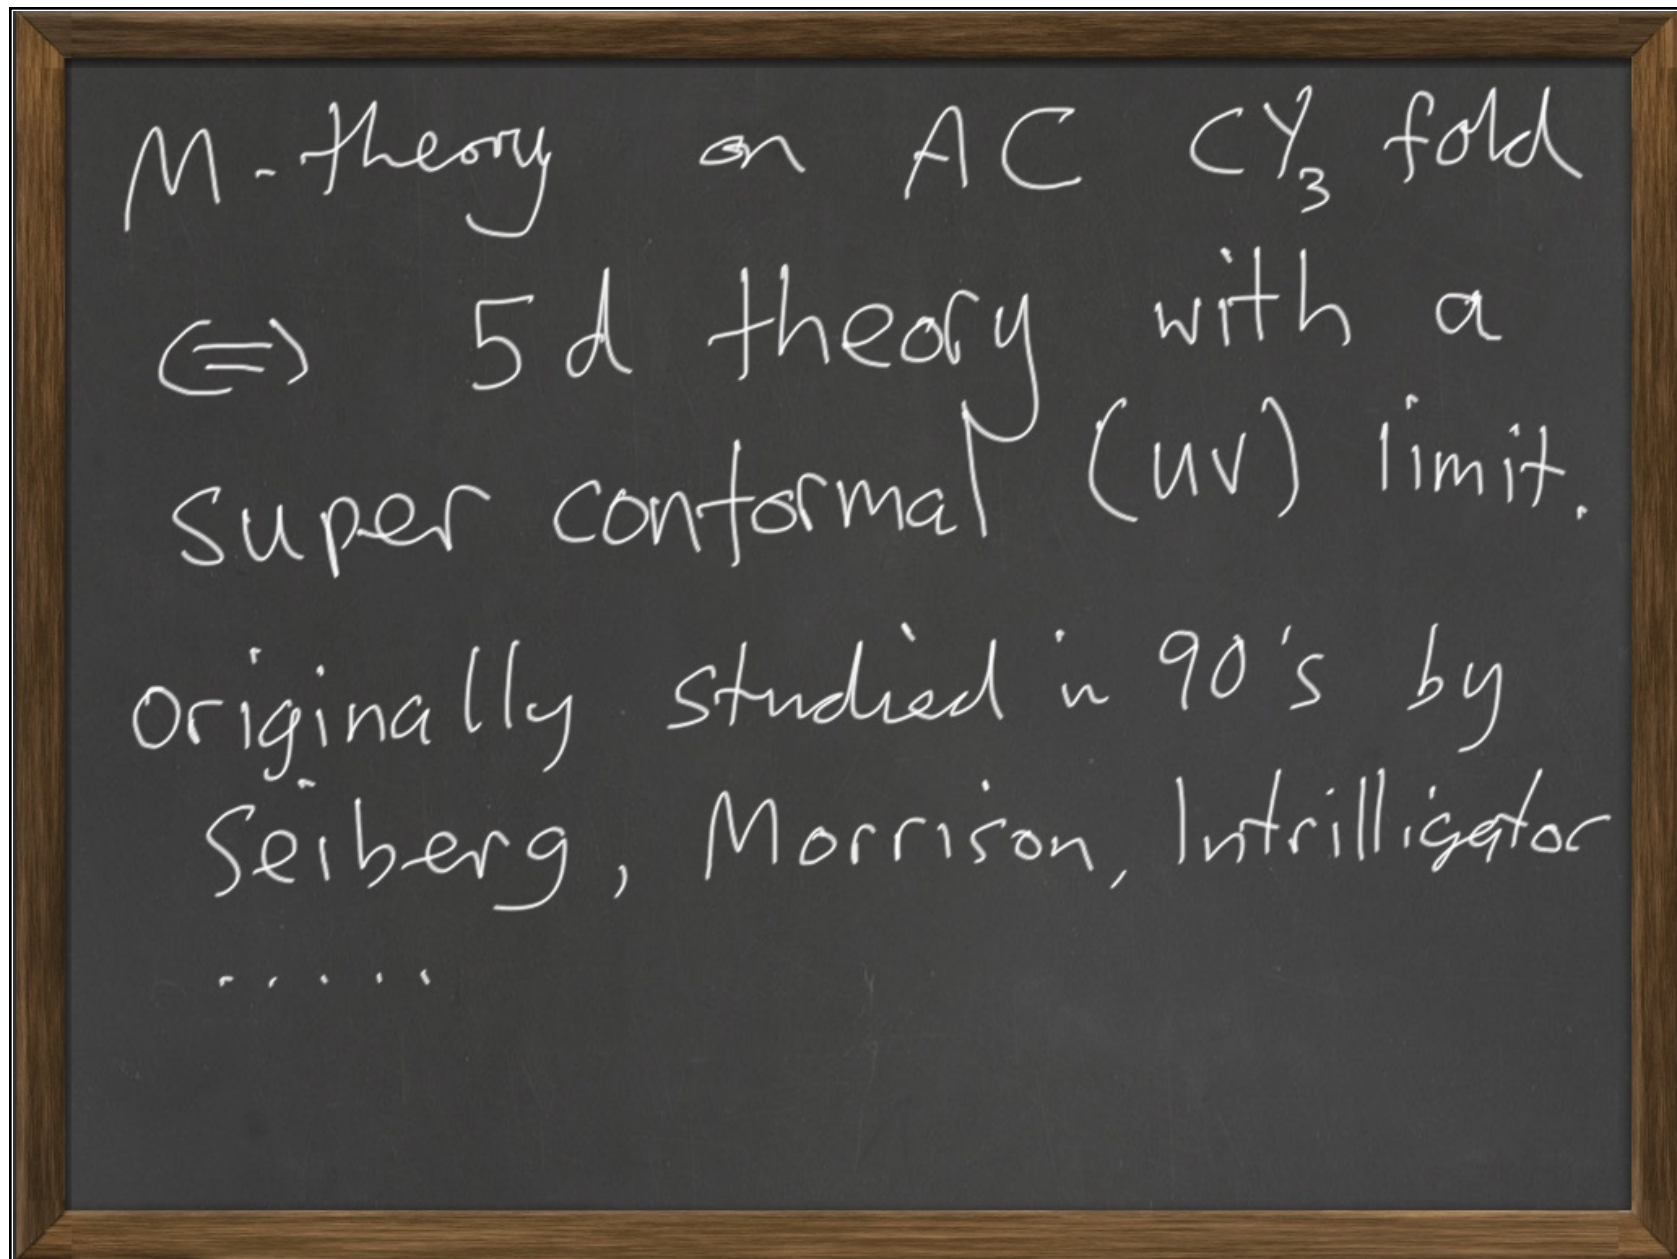 M-theory on AC CY₃ fold
⇔ 5d theory with a
super conformal (UV) limit.
originally studied in 90's by
Seiberg, Morrison, Intrilligator
.....